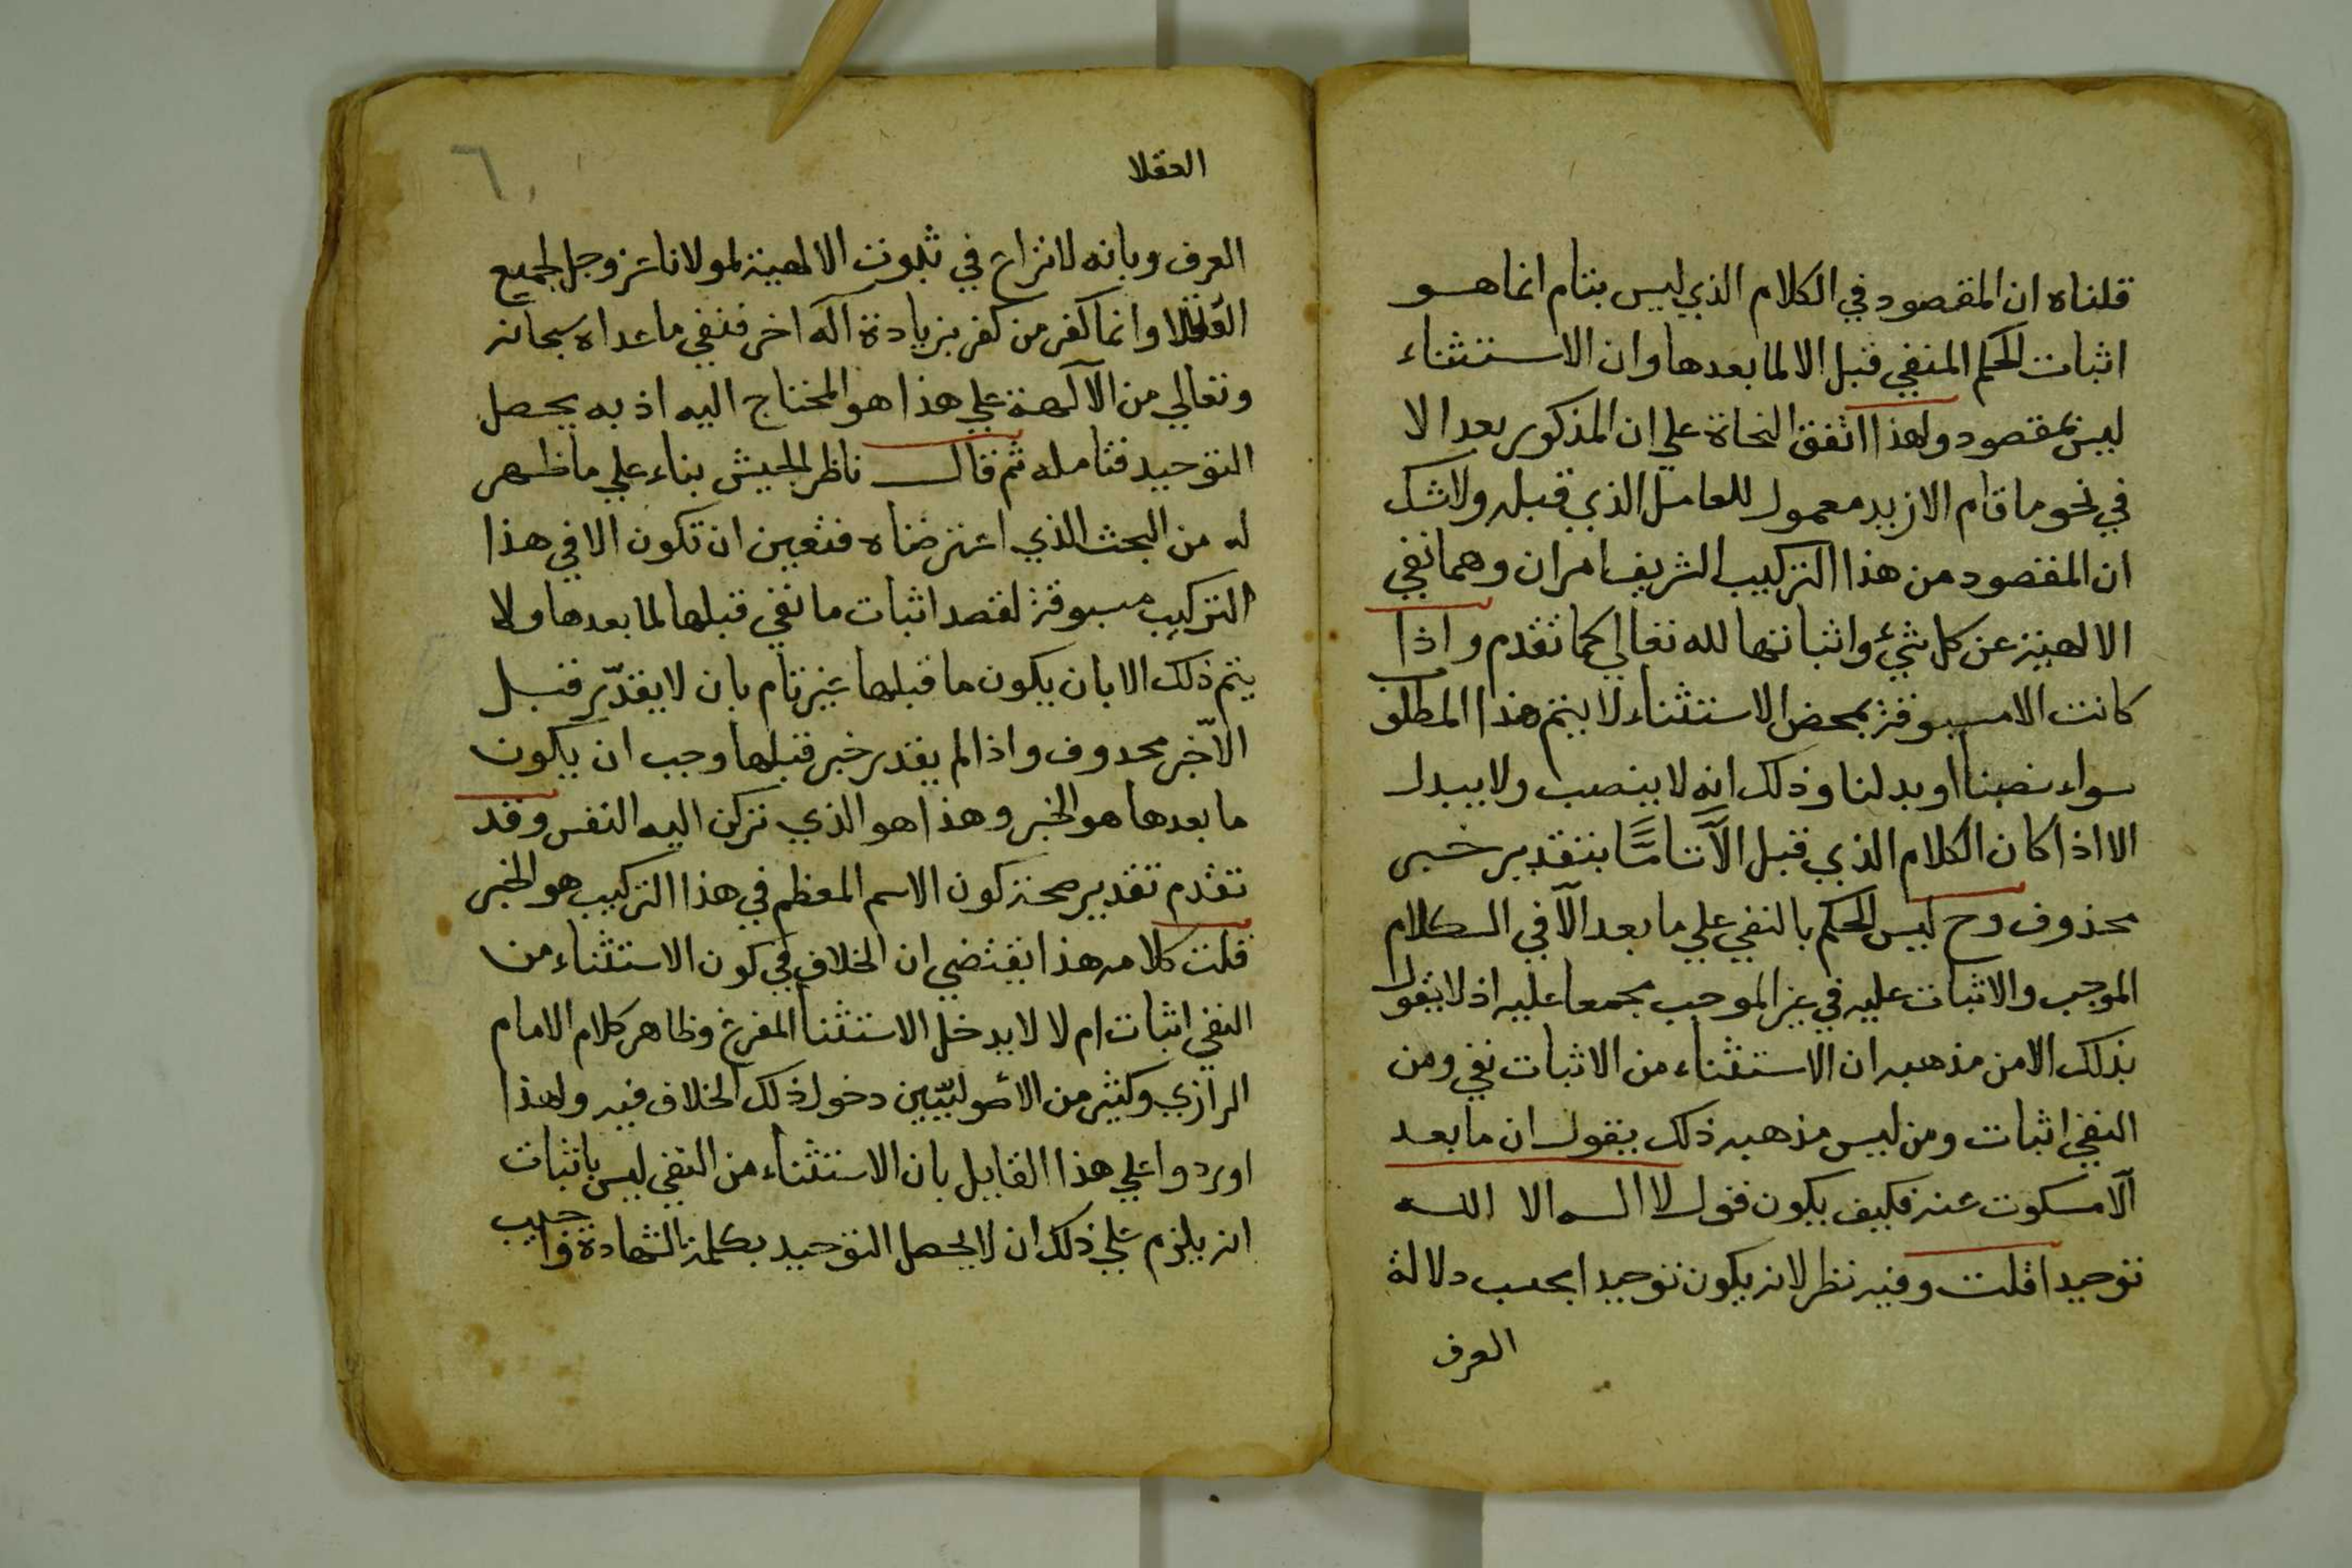 قلناه ان المقصود في الكلام الذي ليس بتام انما هو
اثبات الحكم المنفي قبل الا لما بعدها وان الاستثناء
ليس بمقصود ولهذا اتفق النحاة علي ان المذكور بعد الا
في نحو ما قام الا زيد معمول للعامل الذي قبله ولا شك
ان المقصود من هذا التركيب الشريف امران وهما نفي
الالهية عن كل شيء واثباتها لله تعالي كما تقدم واذا
كانت الا مسبوقة بمحض الاستثناء لا يتم هذا المطلوب
سواء نصبنا او بدلنا وذلك انه لا ينصب ولا يبدل
الا اذا كان الكلام الذي قبل الّا تامًّا بتقدير خبر
محذوف وح ليس الحكم بالنفي علي ما بعد الّا في الكلام
الموجب والاثبات عليه في غير الموجب مجمعا عليه اذ لا يقول
بذلك الا من مذهبه ان الاستثناء من الاثبات نفي ومن
النفي اثبات ومن ليس مذهبه ذلك يقول ان ما بعد
الّا مسكوت عنه فكيف يكون قول لا اله الا الله
توحيدا قلت وفيه نظر لانه يكون توحيدا بحسب دلالة
العرف
العقلا
٦
العرف وبانه لا نزاع في ثبوت الالهية لمولانا عز وجل لجميع
العقلا وانما كفر من كفر بزيادة اله اخر فنفي ما عداه سبحانه
وتعالي من الالهة علي هذا هو المحتاج اليه اذ به يحصل
التوحيد فتامله ثم قال ناظر الجيش بناء علي ما ظهر
له من البحث الذي اعترضناه فتعين ان تكون الا في هذا
التركيب مسبوقة لقصد اثبات ما نفي قبلها لما بعدها ولا
يتم ذلك الا بان يكون ما قبلها غير تام بان لا يقدّر قبل
الا خبر محدوف واذا لم يقدر خبر قبلها وجب ان يكون
ما بعدها هو الخبر وهذا هو الذي تركن اليه النفس وقد
تقدم تقدير صحة كون الاسم المعظم في هذا التركيب هو الخبر
قلت كلامه هذا يقتضي ان الخلاف في كون الاستثناء من
النفي اثبات ام لا لا يدخل الاستثنا المفرغ وظاهر كلام الامام
الرازي وكثير من الأصوليّين دخول ذلك الخلاف فيه ولهذا
اوردوا علي هذا القايل بان الاستثناء من النفي ليس باثبات
انه يلزم علي ذلك ان لا يحصل التوحيد بكلمة الشهادة واجيب